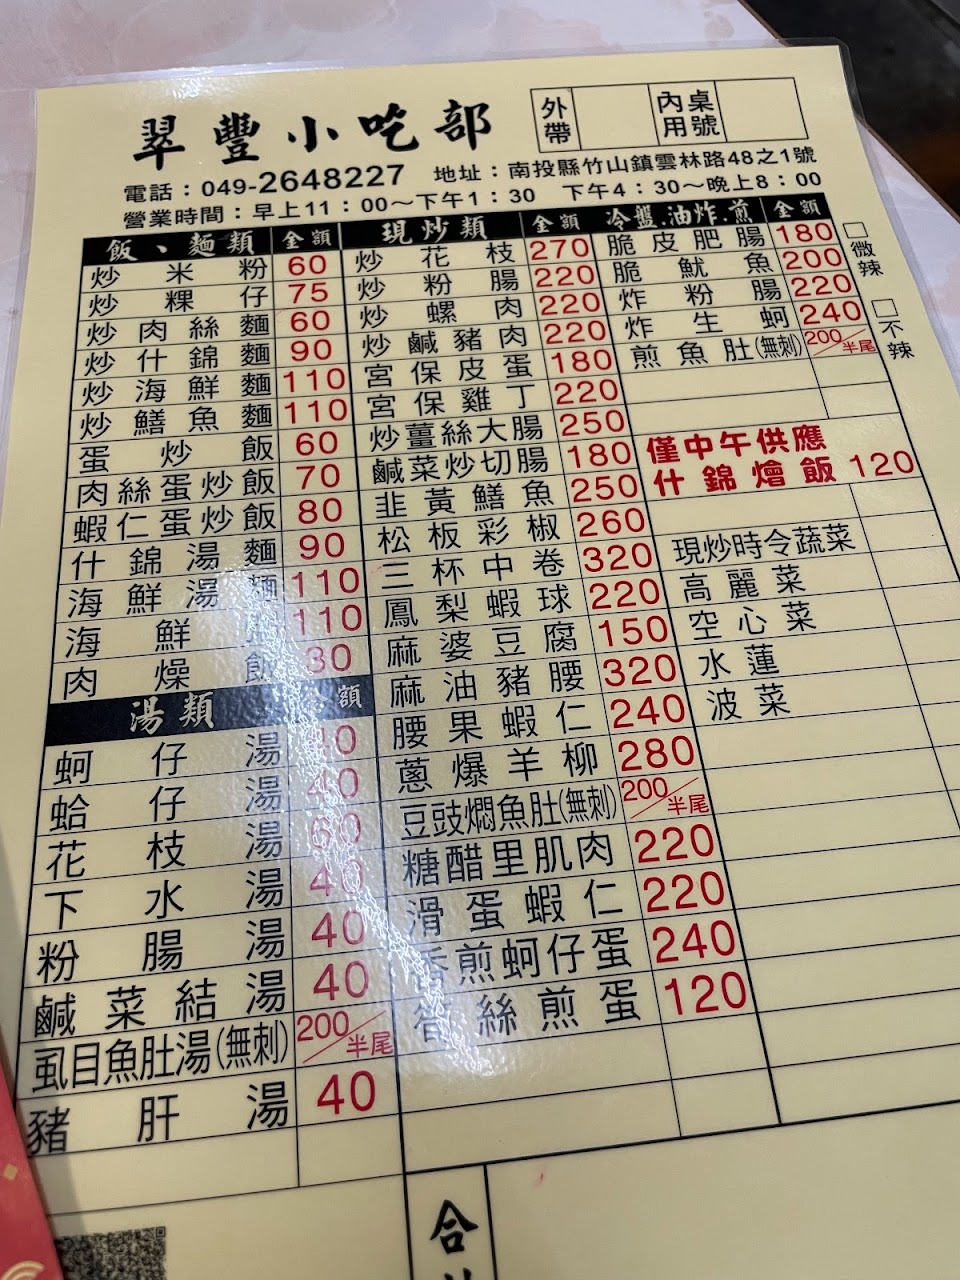 翠豐小吃部
外帶
內用 桌號
電話：049-2648227 地址：南投縣竹山鎮雲林路48之1號
營業時間：早上11：00～下午1：30 下午4：30～晚上8：00
飯、麵類 金額
炒米粉 60
炒粿仔 75
炒肉絲麵 60
炒什錦麵 90
炒海鮮麵 110
炒鱔魚麵 110
蛋炒飯 60
肉絲蛋炒飯 70
蝦仁蛋炒飯 80
什錦湯麵 90
海鮮湯麵 110
海鮮 110
肉燥飯 30
湯類 金額
蚵仔湯 40
蛤仔湯 40
花枝湯 60
下水湯 40
粉腸湯 40
鹹菜結湯 40
虱目魚肚湯(無刺) 200/半尾
豬肝湯 40
現炒類 金額
炒花枝 270
炒粉腸 220
炒螺肉 220
炒鹹豬肉 220
宮保皮蛋 180
宮保雞丁 220
炒薑絲大腸 250
鹹菜炒切腸 180
韭黃鱔魚 250
松板彩椒 260
三杯中卷 320
鳳梨蝦球 220
麻婆豆腐 150
麻油豬腰 320
腰果蝦仁 240
蔥爆羊柳 280
豆豉燜魚肚(無刺) 200/半尾
糖醋里肌肉 220
滑蛋蝦仁 220
香煎蚵仔蛋 240
筍絲煎蛋 120
冷盤.油炸.煎 金額
脆皮肥腸 180
脆魷魚 200
炸粉腸 220
炸生蚵 240
煎魚肚(無刺) 200/半尾
□微辣
□不辣
僅中午供應
什錦燴飯 120
現炒時令蔬菜
高麗菜
空心菜
水蓮
波菜
合